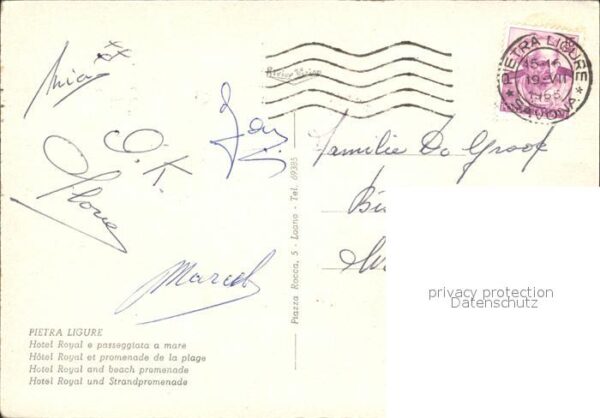 Mia
O.K.
Marcel
PIETRA LIGURE
Hotel Royal e passeggiata a mare
Hôtel Royal et promenade de la plage
Hotel Royal and beach promenade
Hotel Royal und Strandpromenade
Piazza Rocca, 5 - Loano - Tel. 69385
PIETRA LIGURE
15-16
19-VII
SAVONA
Familie De Groof
privacy protection
Datenschutz